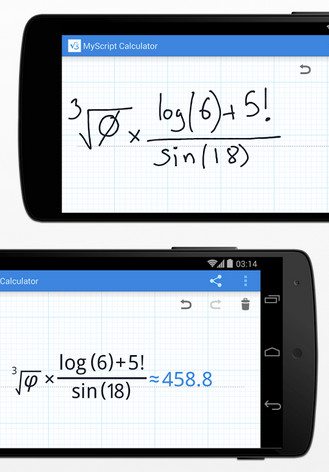 MyScript Calculator
³√Ø × (log(6)+5!)/(sin(18))
03:14
Calculator
³√φ × (log(6)+5!)/(sin(18)) ≈458.8